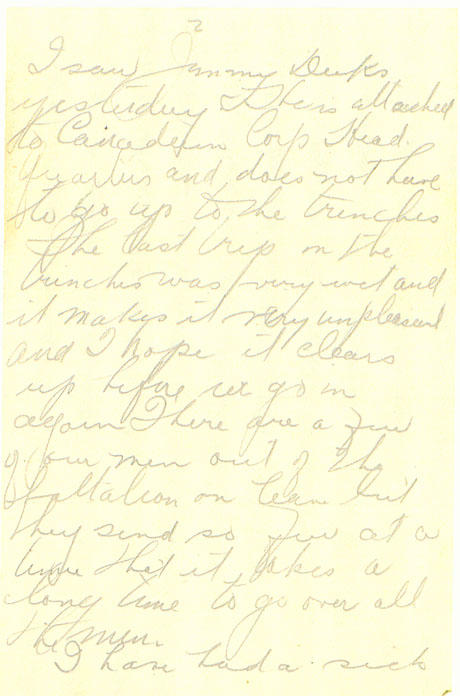 2
I saw Jimmy
yesterday & he is attached
to Canadian Corp Head
Quarters and does not have
to go up to the trenches
The last trip in the
trenches was very wet and
it makes it very unpleasant
and I hope it clears
up before we go in
again There are a few
of our men out of the
Battalion on leave but
they send so few at a
time that it takes a
long time to go over all
the men.
I have had a sick